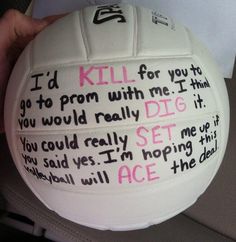 SPA
I'd KILL for you to
go to prom with me. I think
you would really DIG it.
You could really SET me up if
you said yes. I'm hoping this
volleyball will ACE the deal.